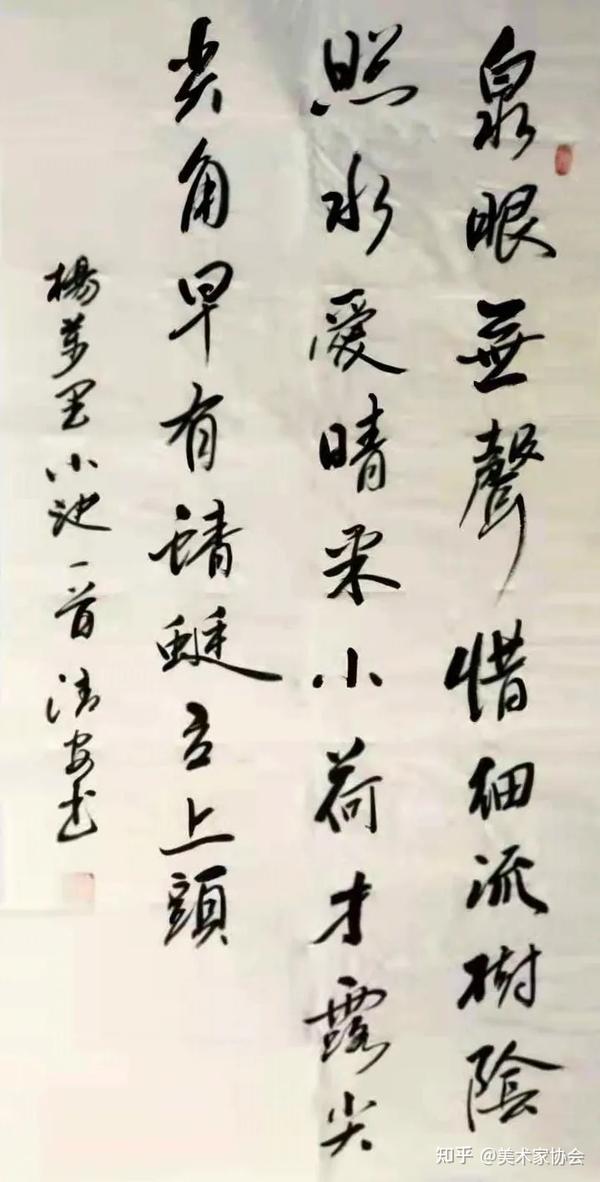 泉眼無聲惜細流樹陰
照水愛晴柔小荷才露尖
尖角早有蜻蜓立上頭
楊萬里小池一首清安书
知乎 @美术家协会